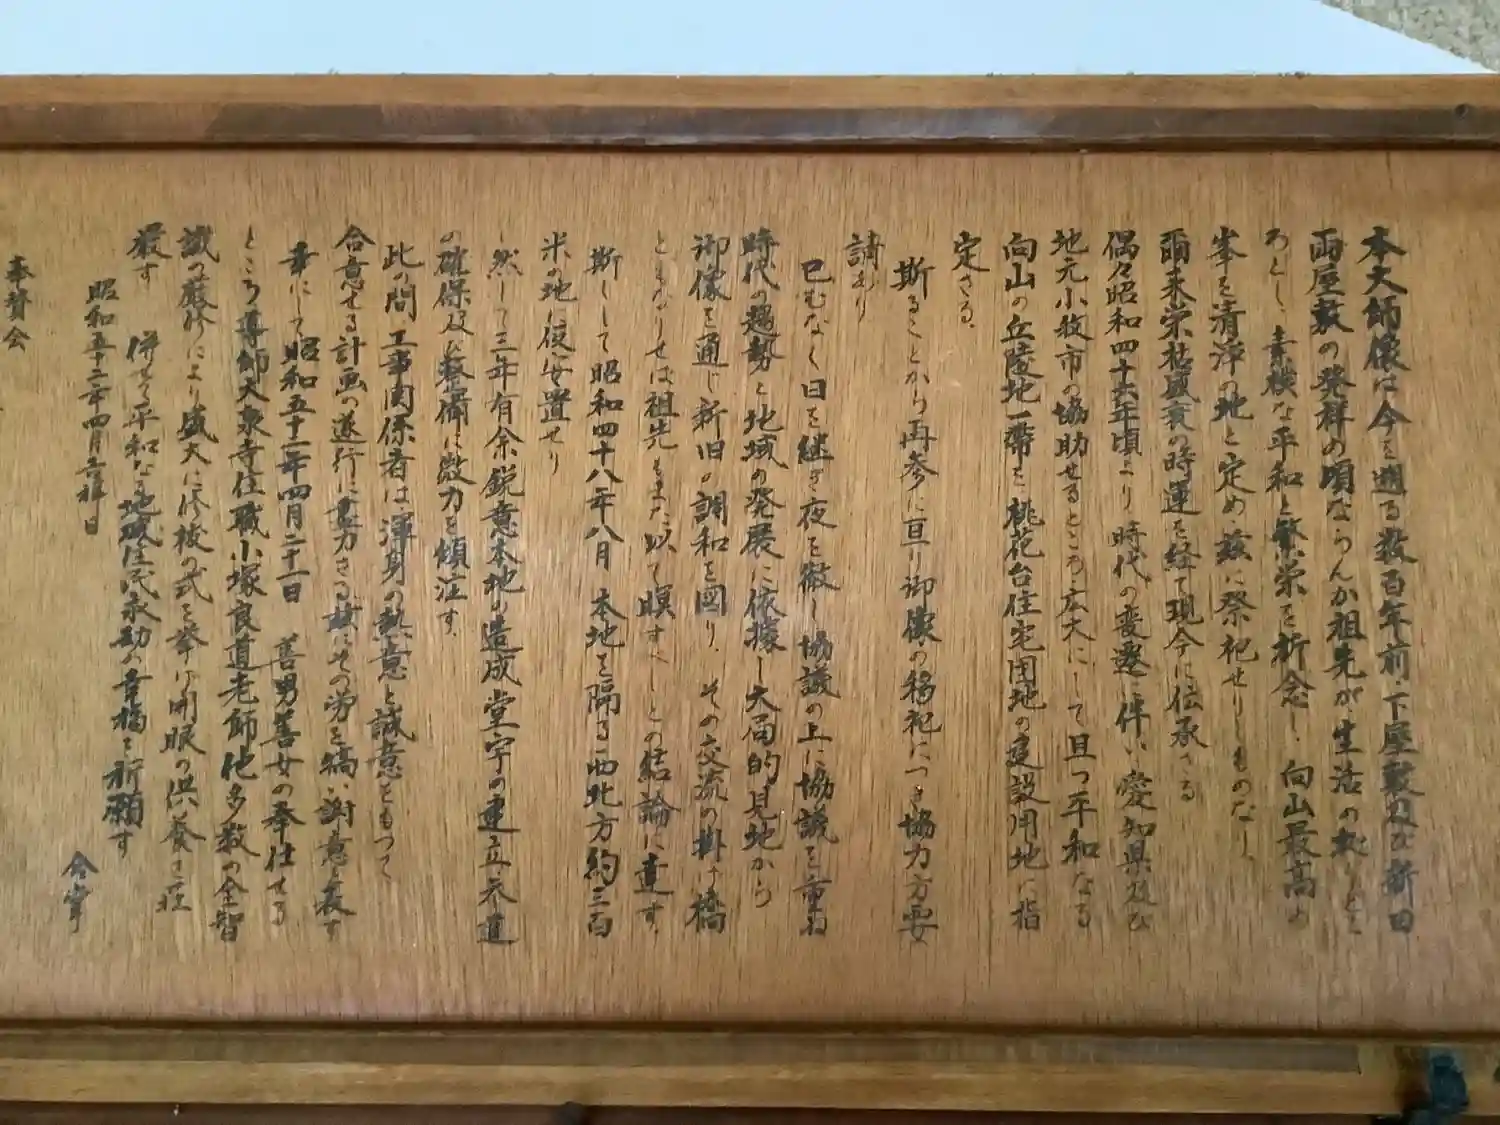 本大師像は今を遡る数百年前、下屋敷及び新田
両屋敷の発祥の頃ならんか祖先が生活のよりどこ
ろとし、素横な平和と繁栄を祈念し、向山最高の
峯を清浄の地と定め、茲に祭祀せりしものなり、
爾来栄枯盛衰の時運を経て現今に伝承さる
偶々昭和四十六年頃より時代の変遷に伴い愛知県及び
地元小牧市の協助せるところ広大にして且つ平和なる
向山の丘陵地一帯を桃花台住宅団地の建設用地に指
定さる、
斯ることから再参に亘り御像の移祀につき協力方要
請あり
已むなく日を継ぎ夜を徹し協議の上に協議を重ね
時代の趨勢と地域の発展に依據し大局的見地から
御像を通じ新旧の調和を図り、その交流の掛け橋
ともなりせば祖先もまた以て瞑すべしとの結論に達す、
斯くして昭和四十八年八月本地を隔る西北方約三百
米の地に仮安置せり
然して三年有余鋭意本地の造成堂宇の建立参道
の確保及び整備に微力を傾注す、
此の間工事関係者は、渾身の熱意と誠意をもって
合意せる計画の遂行に尽力さる、茲にその労を犒い謝意を表す
幸にして昭和五十二年四月二十一日 善男善女の奉仕せる
ところ導師大泉寺住職小塚良道老師他多数の全智
識の厳修により盛大に修祓の式を挙げ開眼の供養を荘
厳す 併せて平和なる地域住民永劫の幸福を祈願す
昭和五十二年四月吉祥日
合掌
奉賛会